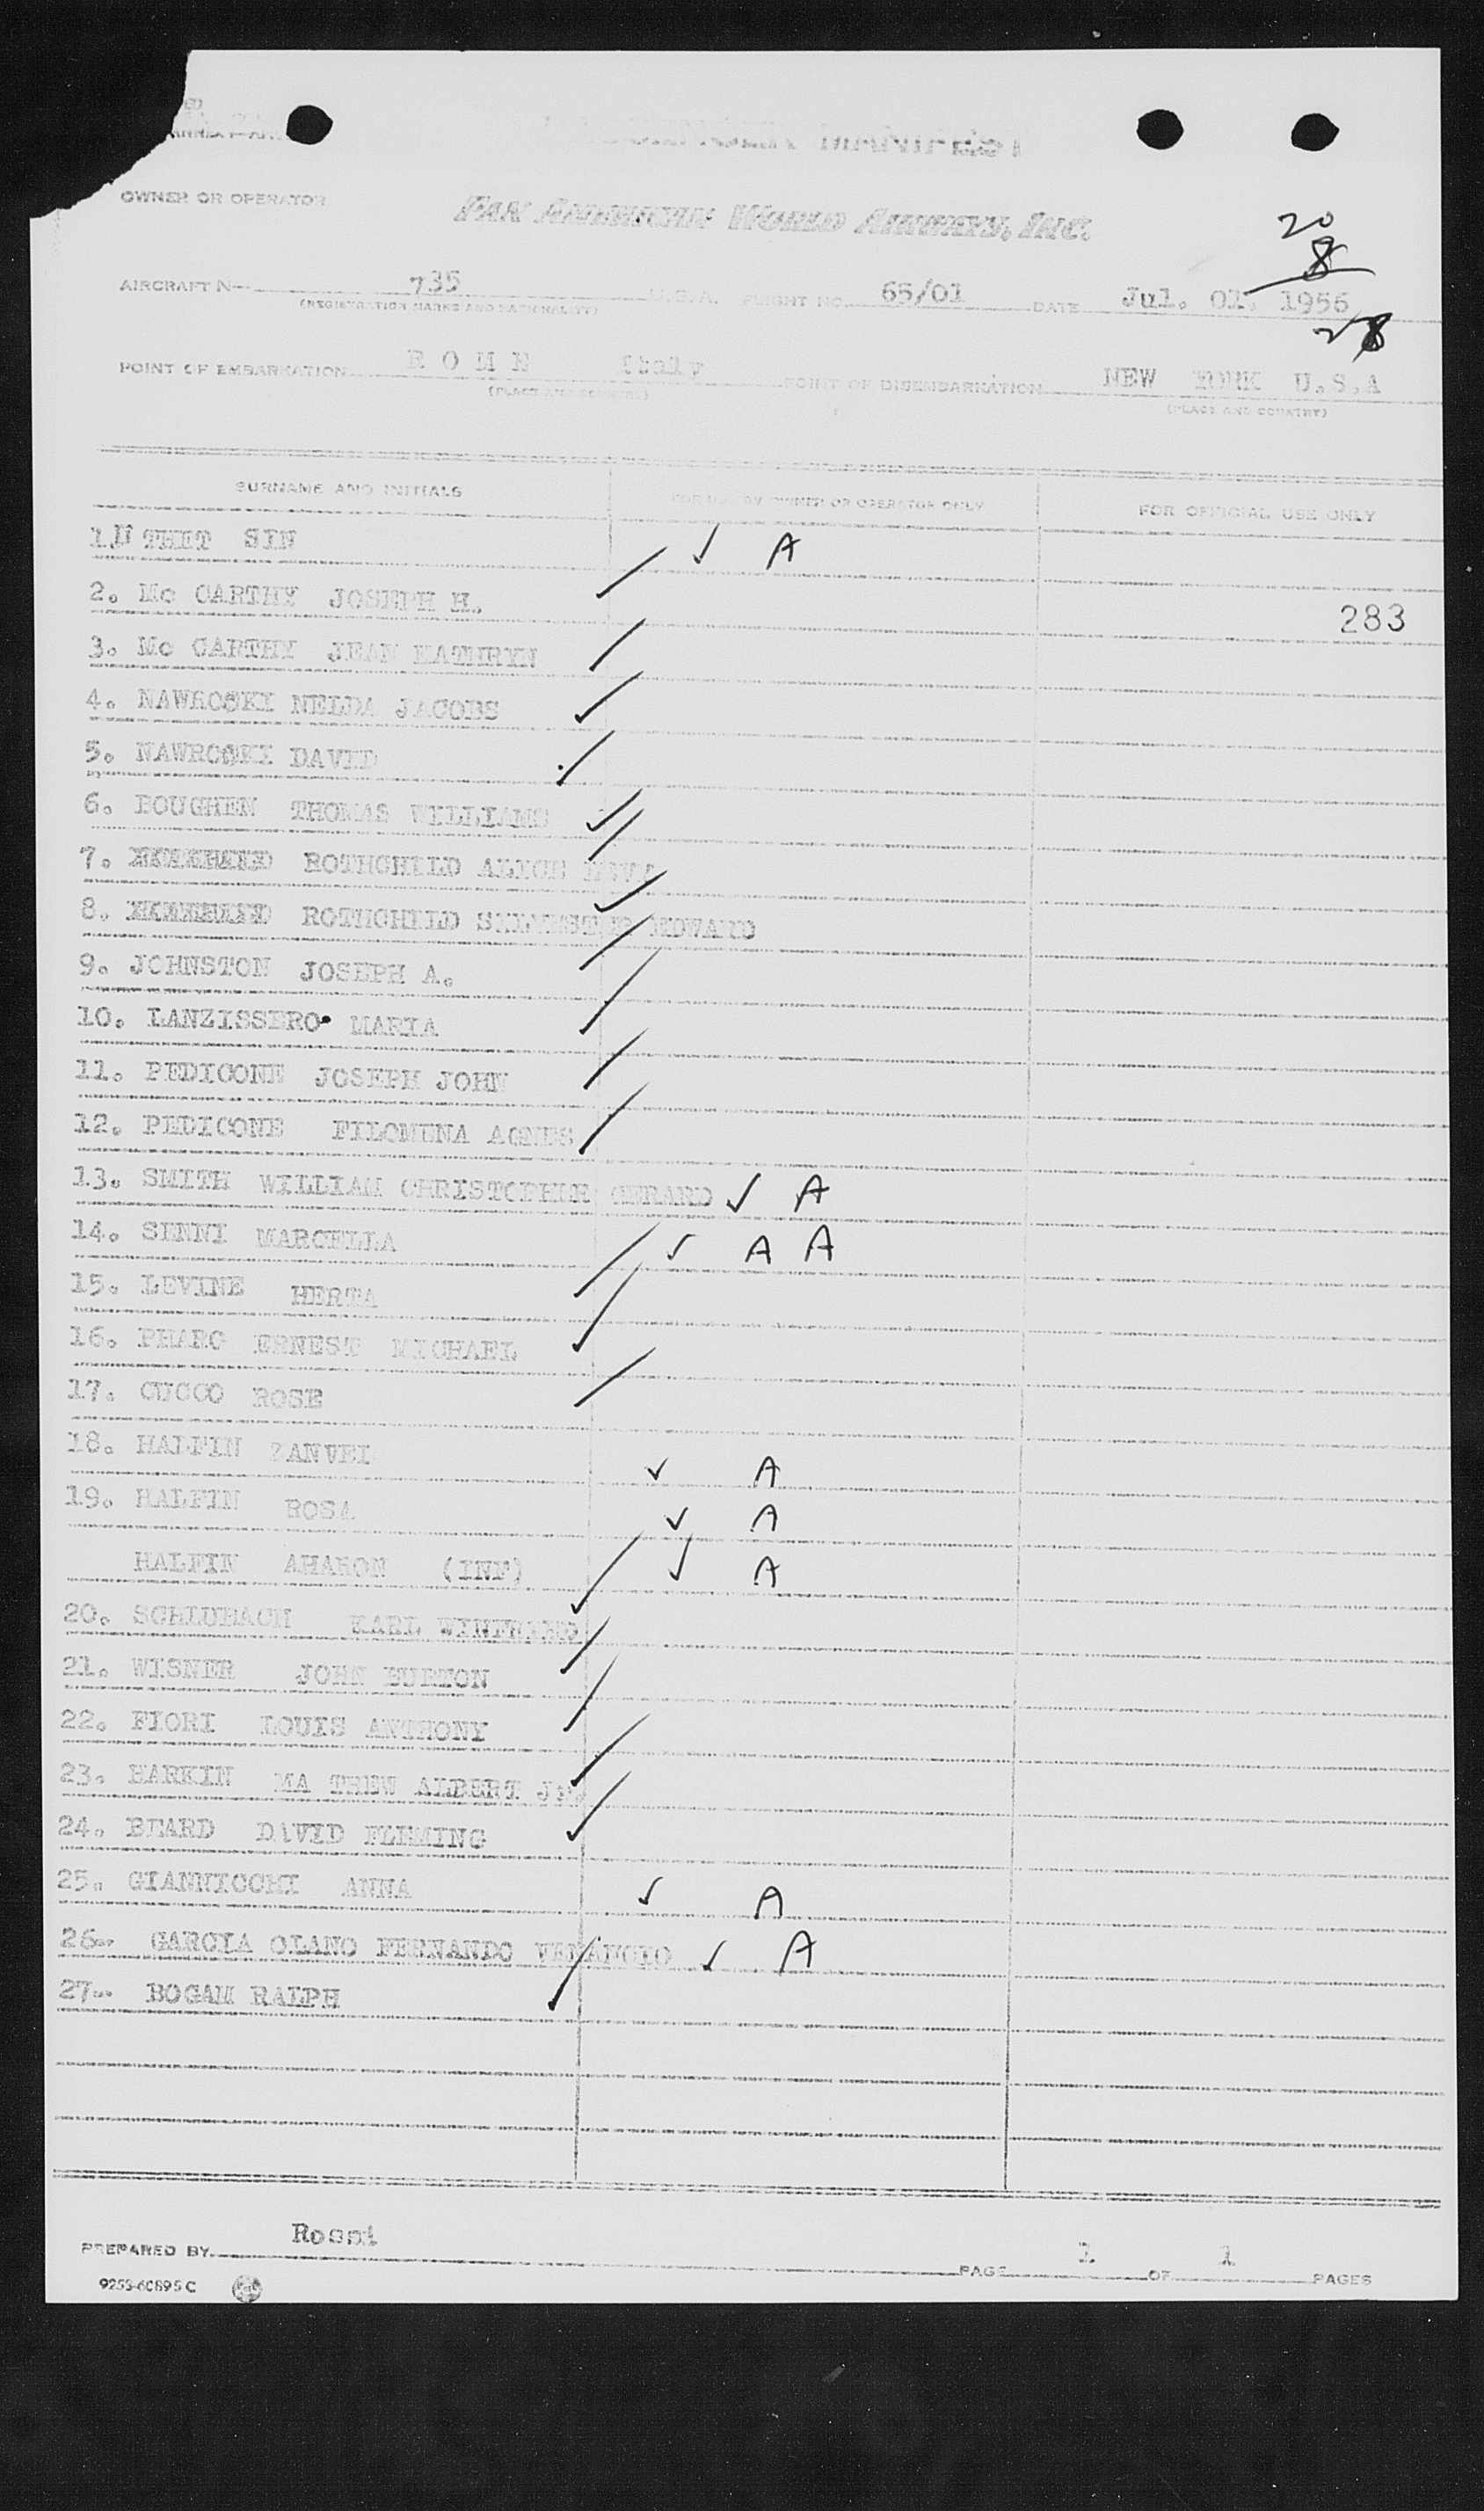 OWNER OR OPERATOR
PAN AMERICAN WORLD AIRWAYS, INC.
20
8
AIRCRAFT N 735 U.S.A. FLIGHT NO. 65/01 DATE Jul. 01, 1956
(REGISTRATION MARKS AND NATIONALITY)
28
POINT OF EMBARKATION R O M E Italy POINT OF DISEMBARKATION NEW YORK U.S.A
(PLACE AND COUNTRY) (PLACE AND COUNTRY)
SURNAME AND INITIALS FOR USE BY OWNER OR OPERATOR ONLY FOR OFFICIAL USE ONLY
1.U THET SIN ✓ A
2. Mc CARTHY JOSEPH H.
283
3. Mc CARTHY JEAN KATHRYN
4. NAWROCKI NELDA JACOBS
5. NAWROCKI DAVID
6. BOUGHEN THOMAS WILLIAMS
7. ROTHCHILD ALICE
8. ROTHCHILD SILVESTER EDWARD
9. JOHNSTON JOSEPH A.
10. LANZISSERO MARIA
11. PEDICONE JOSEPH JOHN
12. PEDICONE FILOMENA AGNES
13. SMITH WILLIAM CHRISTOPHER GERARD ✓ A
14. SENNI MARCELLA ✓ A A
15. LEVINE HERTA
16. PHARO ERNEST MICHAEL
17. CUCCO ROSE
18. HALFIN ZANVEI ✓ A
19. HALFIN ROSA ✓ A
HALFIN AHARON (INF) ✓ A
20. SCHLUBACH KARL
21. WISNER JOHN BURTON
22. FIORI LOUIS ANTHONY
23. HARKIN MA THEW ALBERT Jr.
24. BEARD DAVID FLEMING
25. GIANNICCHI ANNA ✓ A
26- GARCIA OLANO FERNANDO VENANCIO ✓ A
27- BOGAM RALPH
PREPARED BY Rossi
PAGE 1 OF 1 PAGES
9255-60895 C